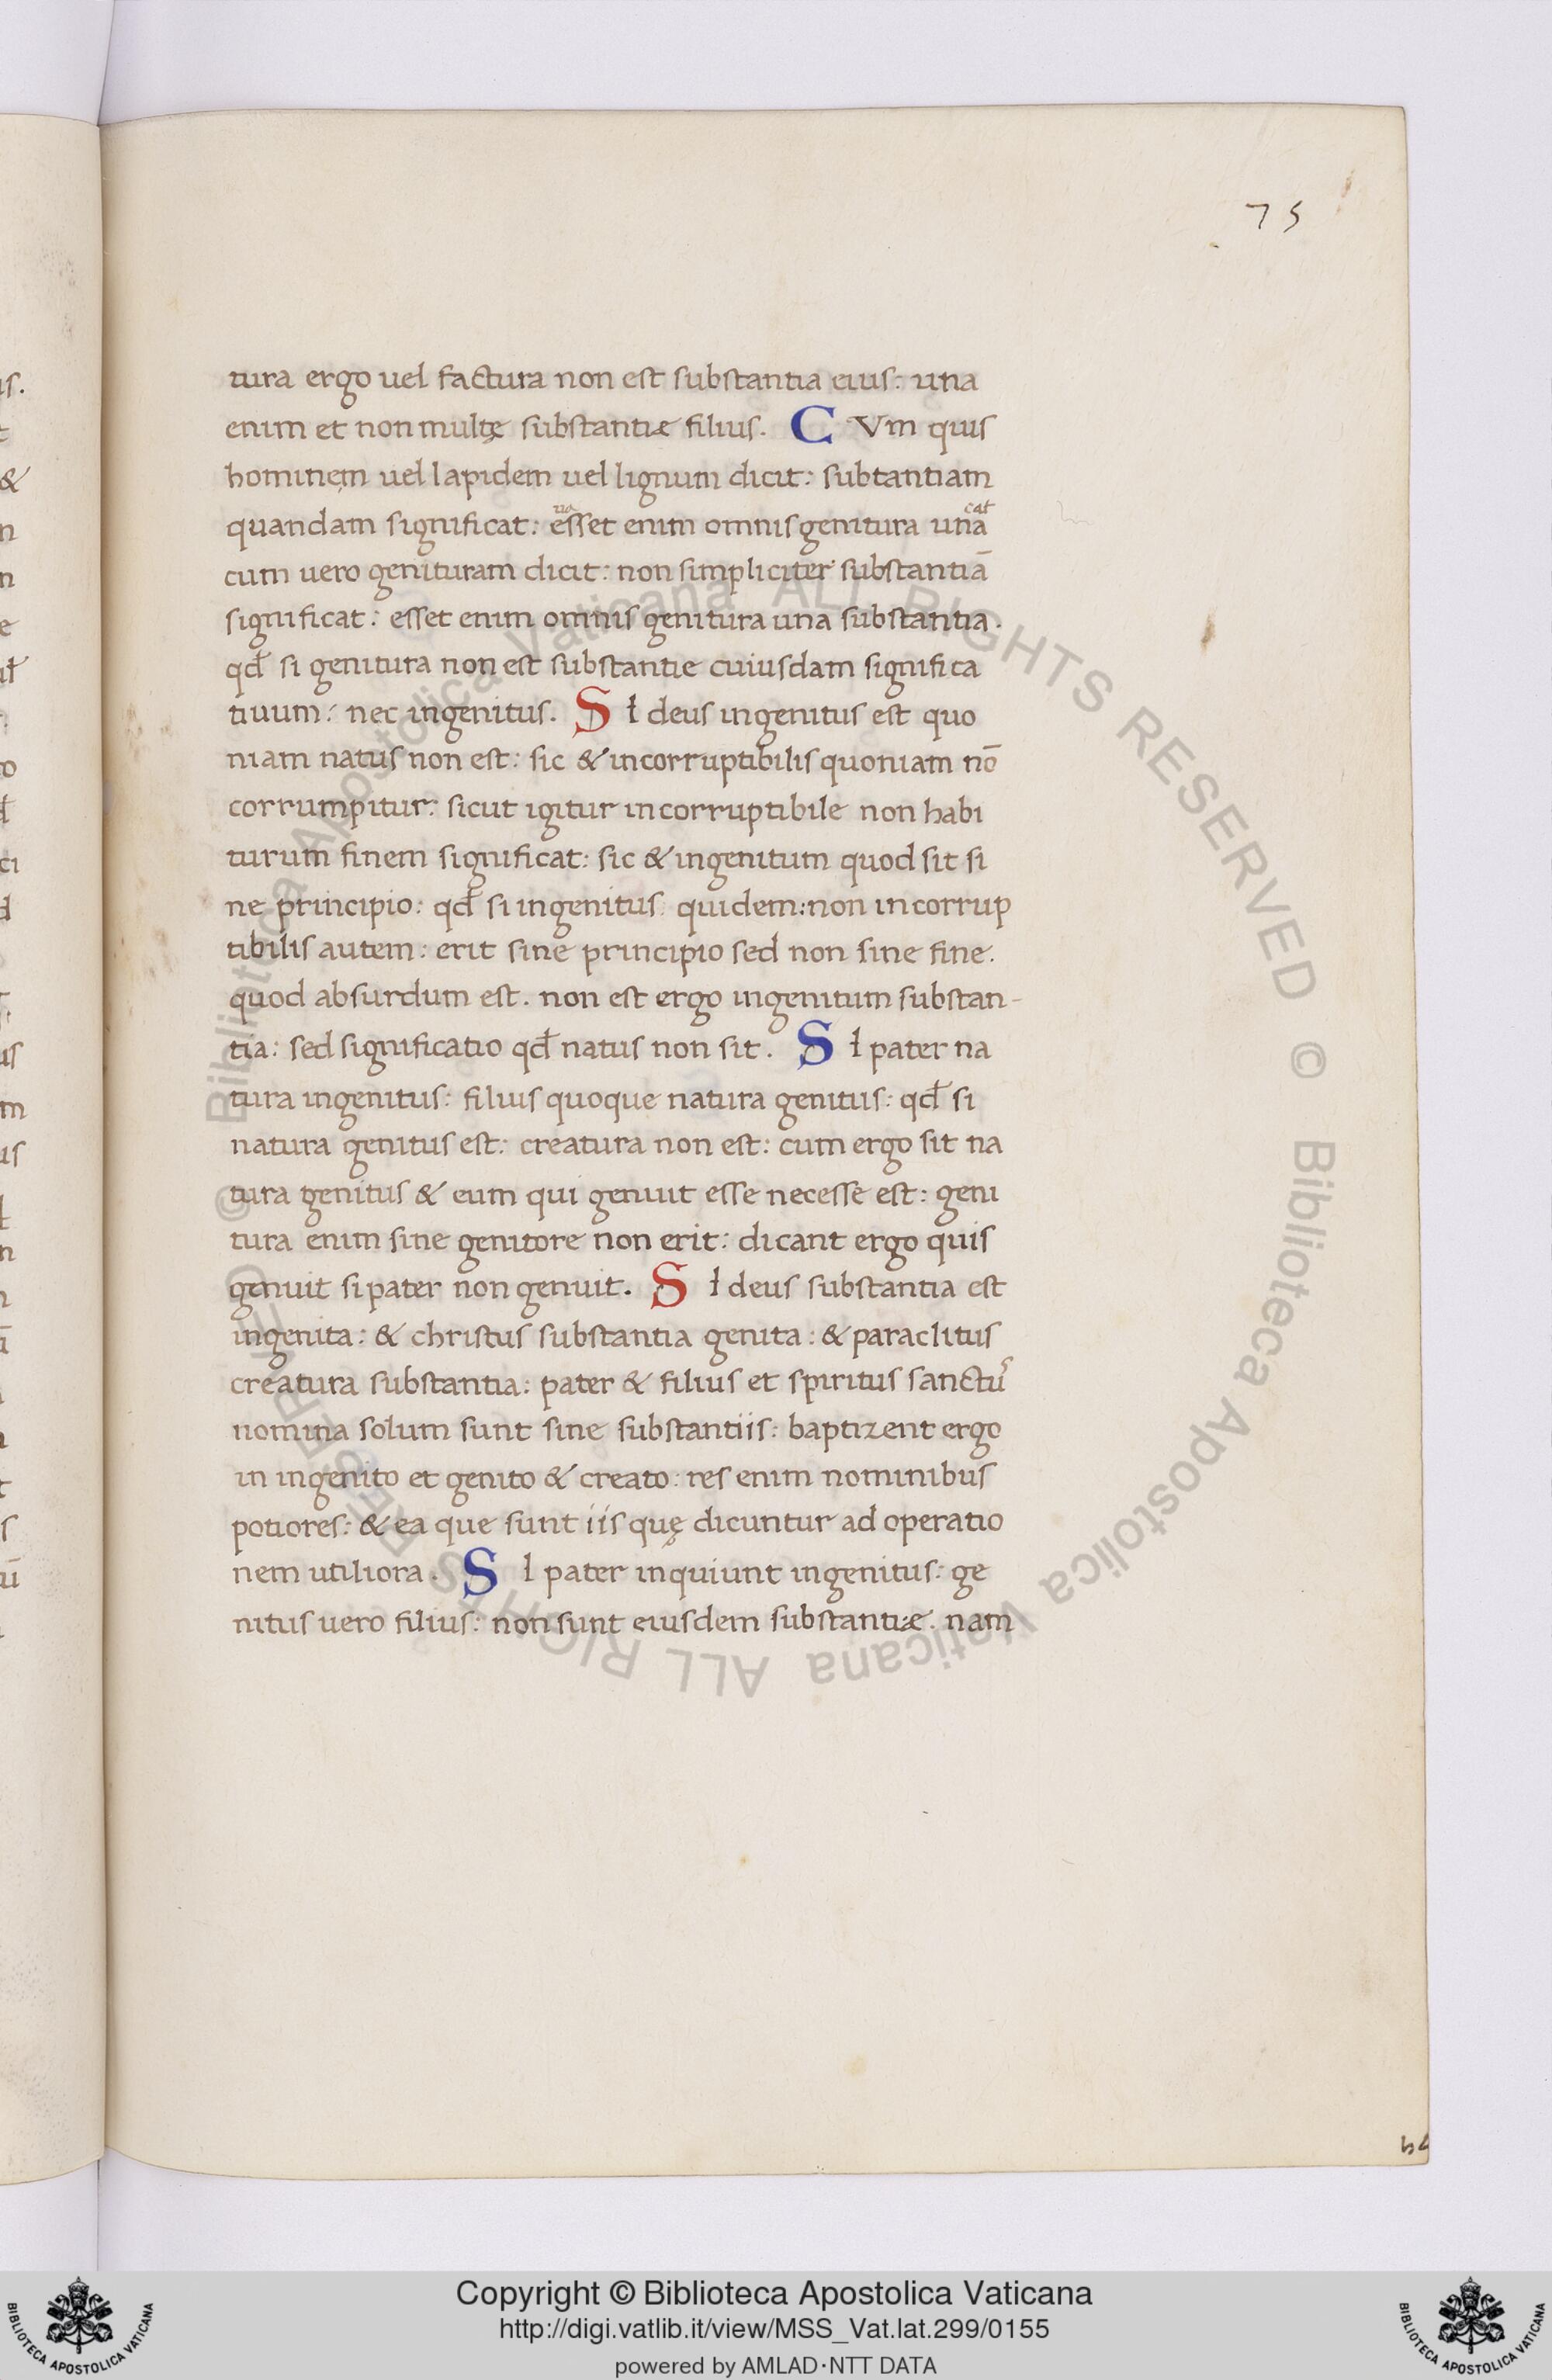 75
tura ergo uel factura non est substantia eius: una
enim et non multę substantiæ filius. C Vm quis
hominem uel lapidem uel lignum dicit: subtantiam
quandam significat: ua esset enim omnis genitura una cat
cum uero genituram dicit: non simpliciter substantiā
significat: esset enim omnis genitura una substantia.
qđ si genitura non est substantie cuiusdam significa
tiuum: nec ingenitus. S I deus ingenitus est quo
niam natus non est: sic & incorruptibilis quoniam nō
corrumpitur: sicut igitur incorruptibile non habi
turum finem significat: sic & ingenitum quod sit si
ne principio: qđ si ingenitus quidem: non incorrup
tibilis autem: erit sine principio sed non sine fine:
quod absurdum est. non est ergo ingenitum substan-
tia: sed significatio qđ natus non sit. S I pater na
tura ingenitus: filius quoque natura genitus: qđ si
natura genitus est: creatura non est: cum ergo sit na
tura genitus & eum qui genuit esse necesse est: geni
tura enim sine genitore non erit: dicant ergo quis
genuit si pater non genuit. S I deus substantia est
ingenita: & christus substantia genita: & paraclitus
creatura substantia: pater & filius et spiritus sanctus
nomina solum sunt sine substantiis: baptizent ergo
in ingenito et genito & creato: res enim nominibus
potiores: & ea que sunt iis quę dicuntur ad operatio
nem utiliora. S I pater inquiunt ingenitus: ge
nitus uero filius: non sunt eiusdem substantiæ. nam
© Biblioteca Apostolica Vaticana ALL RIGHTS RESERVED © Biblioteca Apostolica Vaticana ALL RIGHTS RESERVED
Copyright © Biblioteca Apostolica Vaticana
http://digi.vatlib.it/view/MSS_Vat.lat.299/0155
powered by AMLAD·NTT DATA
BIBLIOTECA APOSTOLICA VATICANA
BIBLIOTECA APOSTOLICA VATICANA